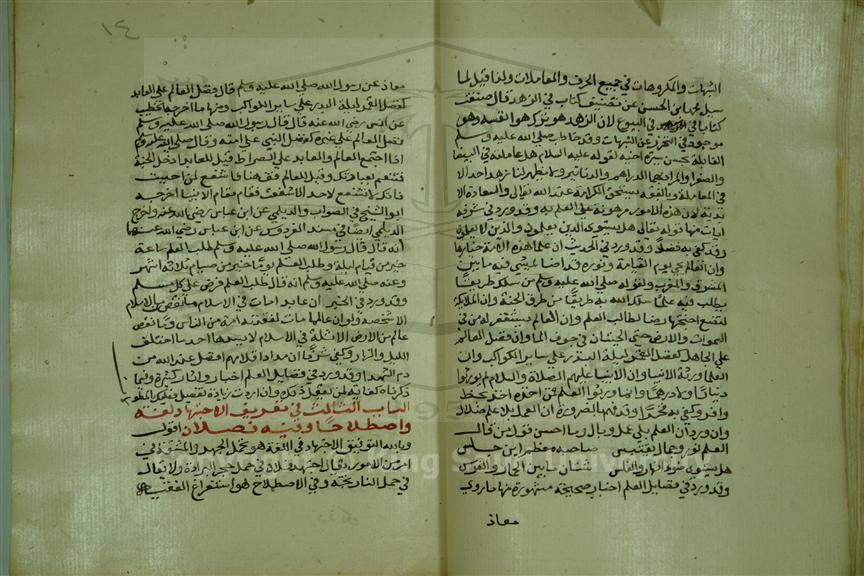 الشبهات والمكروهات في جميع الحرف والمعاملات ولذا قيل لما
سيل محمد ابن الحسن عن تصنيف كتاب في الزهد قال صنفت
كتابا في البيوع لان الزهد هو ترك هوا النفس وهو
موجود في التحرز عن الشبهات وقد حاب صلى الله عليه وسلم
القايلة بحسن سيرة اخيه لقوله عليه السلام هل عاملته في البيضا
والصفرا والمراد بهما الدراهم والدنانير ولا يظهر لنا زهد احد الا
في المعاملة وبالفقه يستحق الكرامة عند الله تعالى والسعادة الا
بدية لان هذه الامور مرهونة على العلم به وقد ورد في شرفه
آيات منها قوله تعالى هل يستوي الذين يعلمون والذين لا يعلمون
وقد كفى به فضلا وقد ورد في الحديث ان علما هذه الامة خيارها
وان العالم يجي يوم القيامة ونوره قد اضا يمشي فيه ما بين
المشرق والمغرب ولقوله صلى الله عليه وسلم من سلك طريقا
يطلب فيه علما سلك الله به طريقا من طرق الجنة وان الملايكة
لتضع اجنحتها رضا لطالب العلم وان العالم يستغفر له من في
السموات والارض حتى الحيتان في جوف الما وان فضل العالم
على الجاهل كفضل القمر ليلة البدر على ساير الكواكب وان
العلما ورثة الانبيا وان الانبيا عليهم الصلاة والسلام لم يورثوا
دينارا ولا درهما وانما ورثوا العلم فمن اخذه اخذ بحظ
وافر وكفى به فخرا وقد فهم بالضرورة ان العمل بلا علم ضلال
وان ورد ان العلم بلا عمل وبال وما احسن قول من قال
العلم نور وجمال يقتبس صاحبه معظم اين جلس
هل يستوي ضوء النهار والغلس شتان ما بين الحمار والفرس
وقد ورد في فضايل العلم اخبار صحيحة مشهورة منها ما روي
معاذ
١٤
معاذ عن رسول الله صلى الله عليه وسلم قال فضل العالم على العابد
كفضل القمر ليلة البدر على ساير الكواكب ومنها ما اخرجه الخطيب
عن انس رضي الله عنه قال قال رسول الله صلى الله عليه وسلم
فضل العالم على غيره كفضل النبي على امته وقال صلى الله عليه وسلم
اذا اجتمع العالم والعابد على الصراط قيل للعابد ادخل الجنة
فتنعم بعبادتك وقيل للعالم قف هنا فاشفع لمن احببت
فانك لا تشفع لاحد الا شفعت فقام مقام الانبيا اخرجه
ابو الشيخ في الصواب والديلمي عن ابن عباس رضي الله عنه واخرج
الديلمي ايضا في مسند الفردوس عن ابن عباس رضي الله عنهما
أنه قال قال رسول الله صلى الله عليه وسلم طلب العلم ساعة
خير من قيام ليلة وطلب العلم يوما خير من صيام ثلاثة اشهر
وعنه صلى الله عليه وسلم انه قال طلب العلم فرض على كل مسلم
وقد ورد في الخبر ان عابد امات في الاسلام ما نقص من الاسلام
الا شخصه ولو ان عالما مات لفقدته امة من الناس وما نقص
عالم من الارض الا ثلمة في الاسلام لا يسدها احد ما اختلف
الليل والنهار وكفى شرفا ان مداد اقلامهم افضل عند الله من
دم الشهدا وقد ورد في فضايل العلم اخبار واثار كثيرة وفيما
ذكرناه كفاية لمن تعقل ذلك وان اردت زيادة تفصيل فعليك بالمطولات
الباب الثالث في تعريف الاجتهاد لغة
واصطلاحا وفيه فصلان اقول
وبالله التوفيق الاجتهاد في اللغة هو تحمل الجهد والمشقة في
امر من الامور يقال اجتهد فلان في حمل حجر البزادة ولا يقال
في حمل النارنجة وفي الاصطلاح هو استفراغ الفقيه